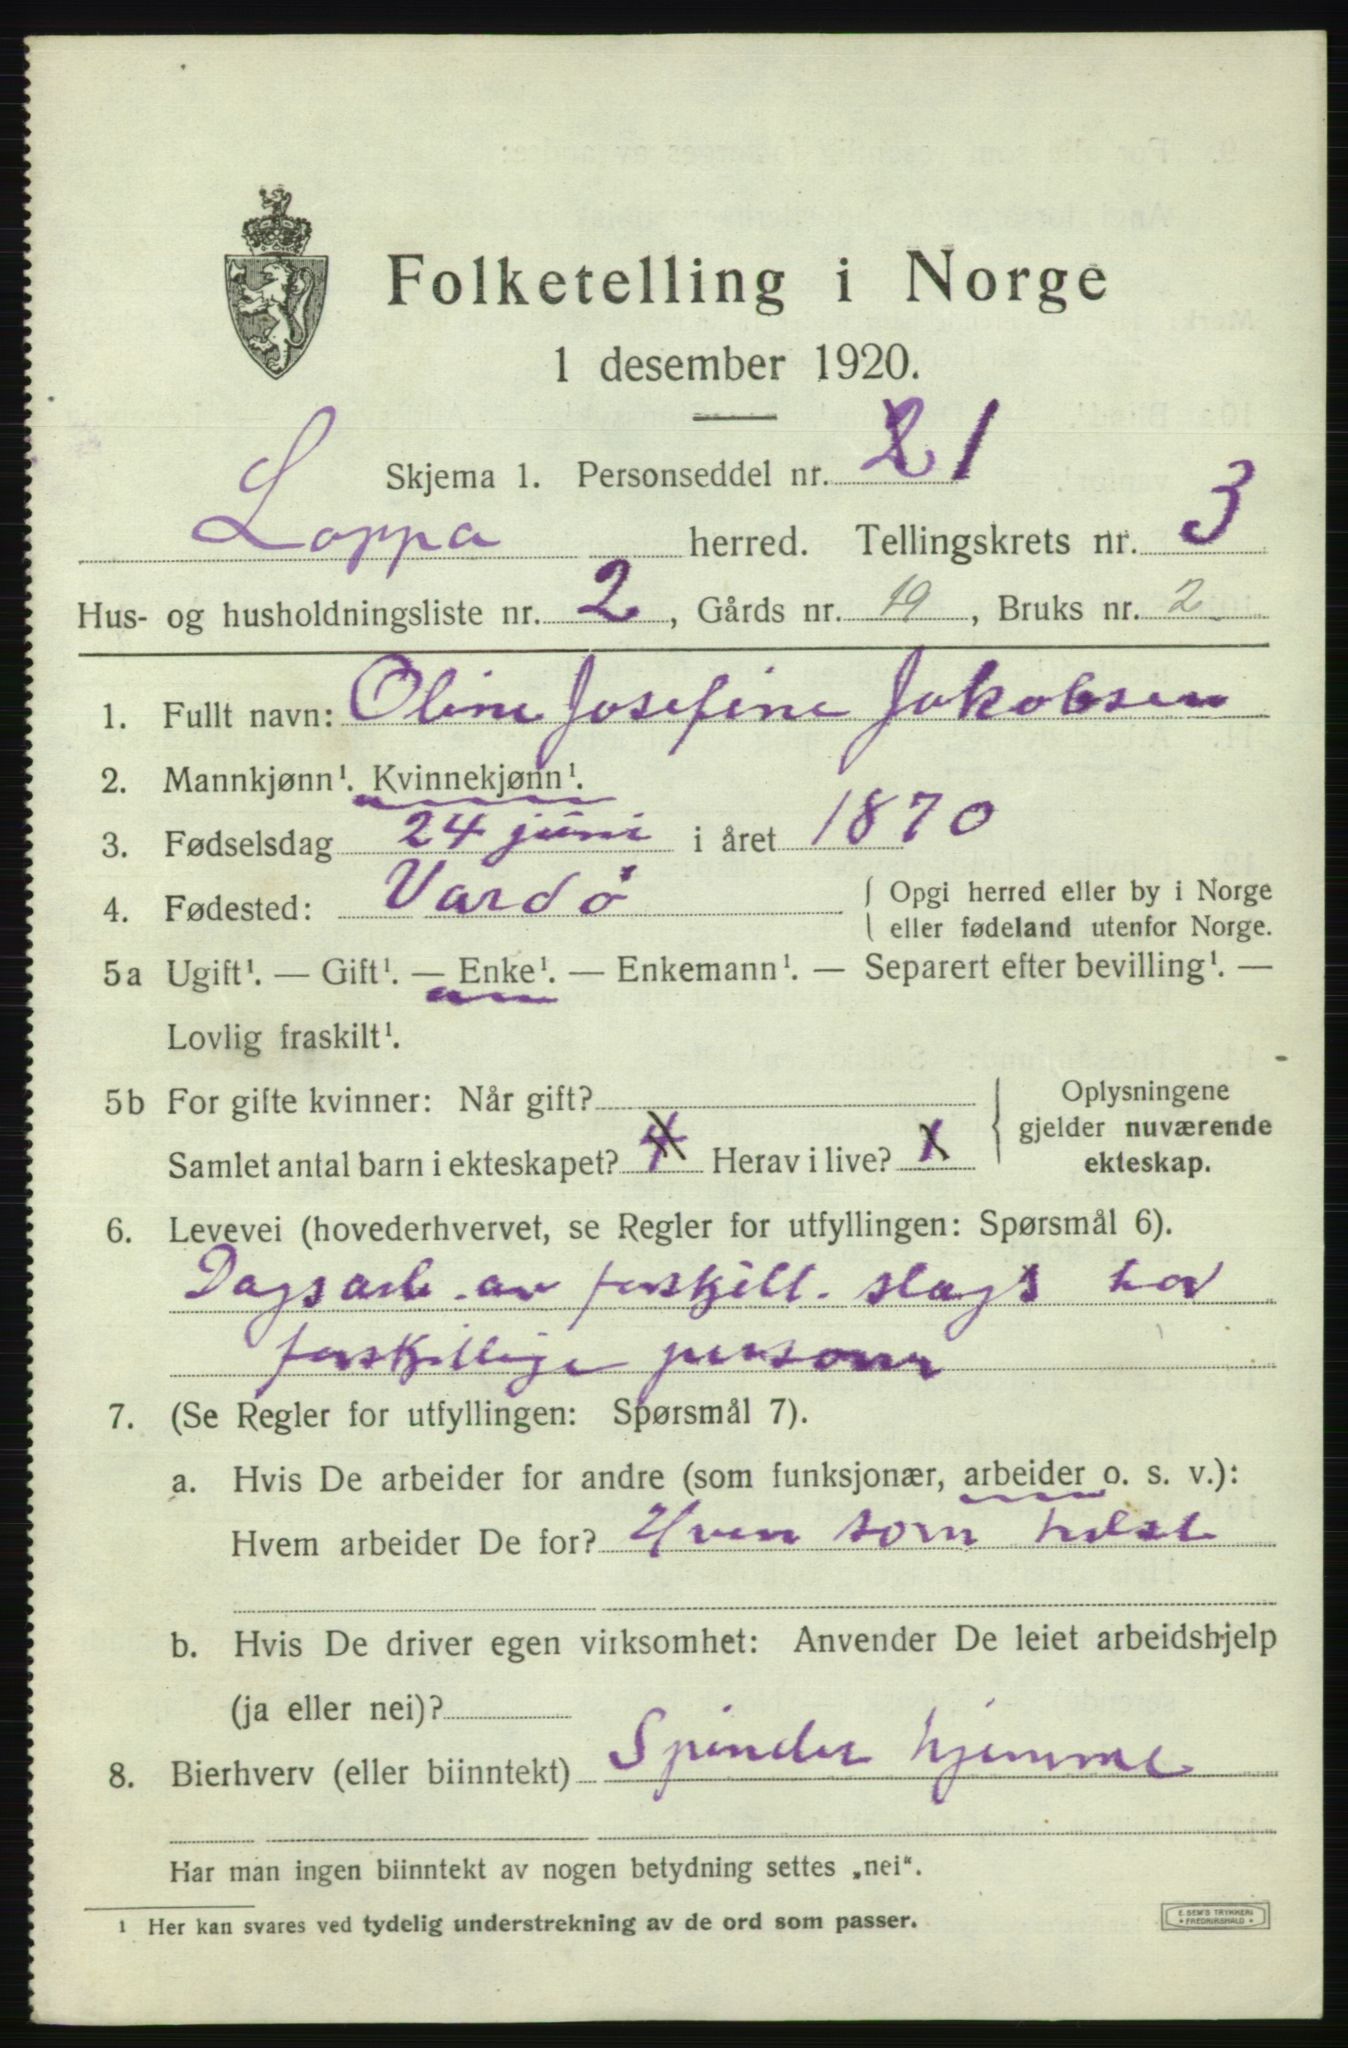 Folketelling i Norge
1 desember 1920.
Skjema 1. Personseddel nr. 2 1
Loppa herred. Tellingskrets nr. 3
Hus- og husholdningsliste nr. 2, Gårds nr. 19, Bruks nr. 2
1. Fullt navn: Oline Josefine Jakobsen
2. Mannkjønn¹. Kvinnekjønn¹.
3. Fødselsdag 24 juni i året 1870
4. Fødested: Vardø { Opgi herred eller by i Norge
eller fødeland utenfor Norge.
5a Ugift¹. — Gift¹. — Enke¹. — Enkemann¹. — Separert efter bevilling¹. —
Lovlig fraskilt¹.
5b For gifte kvinner: Når gift?
Samlet antal barn i ekteskapet? 4 Herav i live? 1
Oplysningene
gjelder nuværende
ekteskap.
6. Levevei (hovederhvervet, se Regler for utfyllingen: Spørsmål 6).
Dagsarb. av forskjell. slags hos
forskjellige personer
7. (Se Regler for utfyllingen: Spørsmål 7).
a. Hvis De arbeider for andre (som funksjonær, arbeider o. s. v.):
Hvem arbeider De for? Hven som helst
b. Hvis De driver egen virksomhet: Anvender De leiet arbeidshjelp
(ja eller nei)?
8. Bierhverv (eller biinntekt) Spinder hjemme
Har man ingen biinntekt av nogen betydning settes „nei".
¹ Her kan svares ved tydelig understrekning av de ord som passer.
E. SEM'S TRYKKERI
FREDRIKSHALD